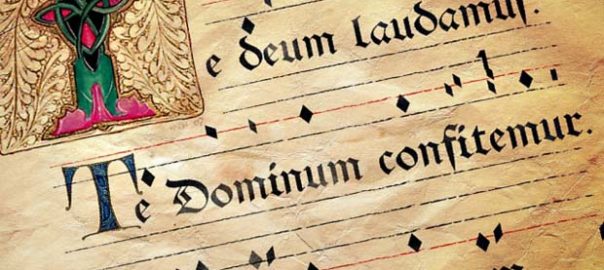 Te deum laudamus.
Te Dominum confitemur.